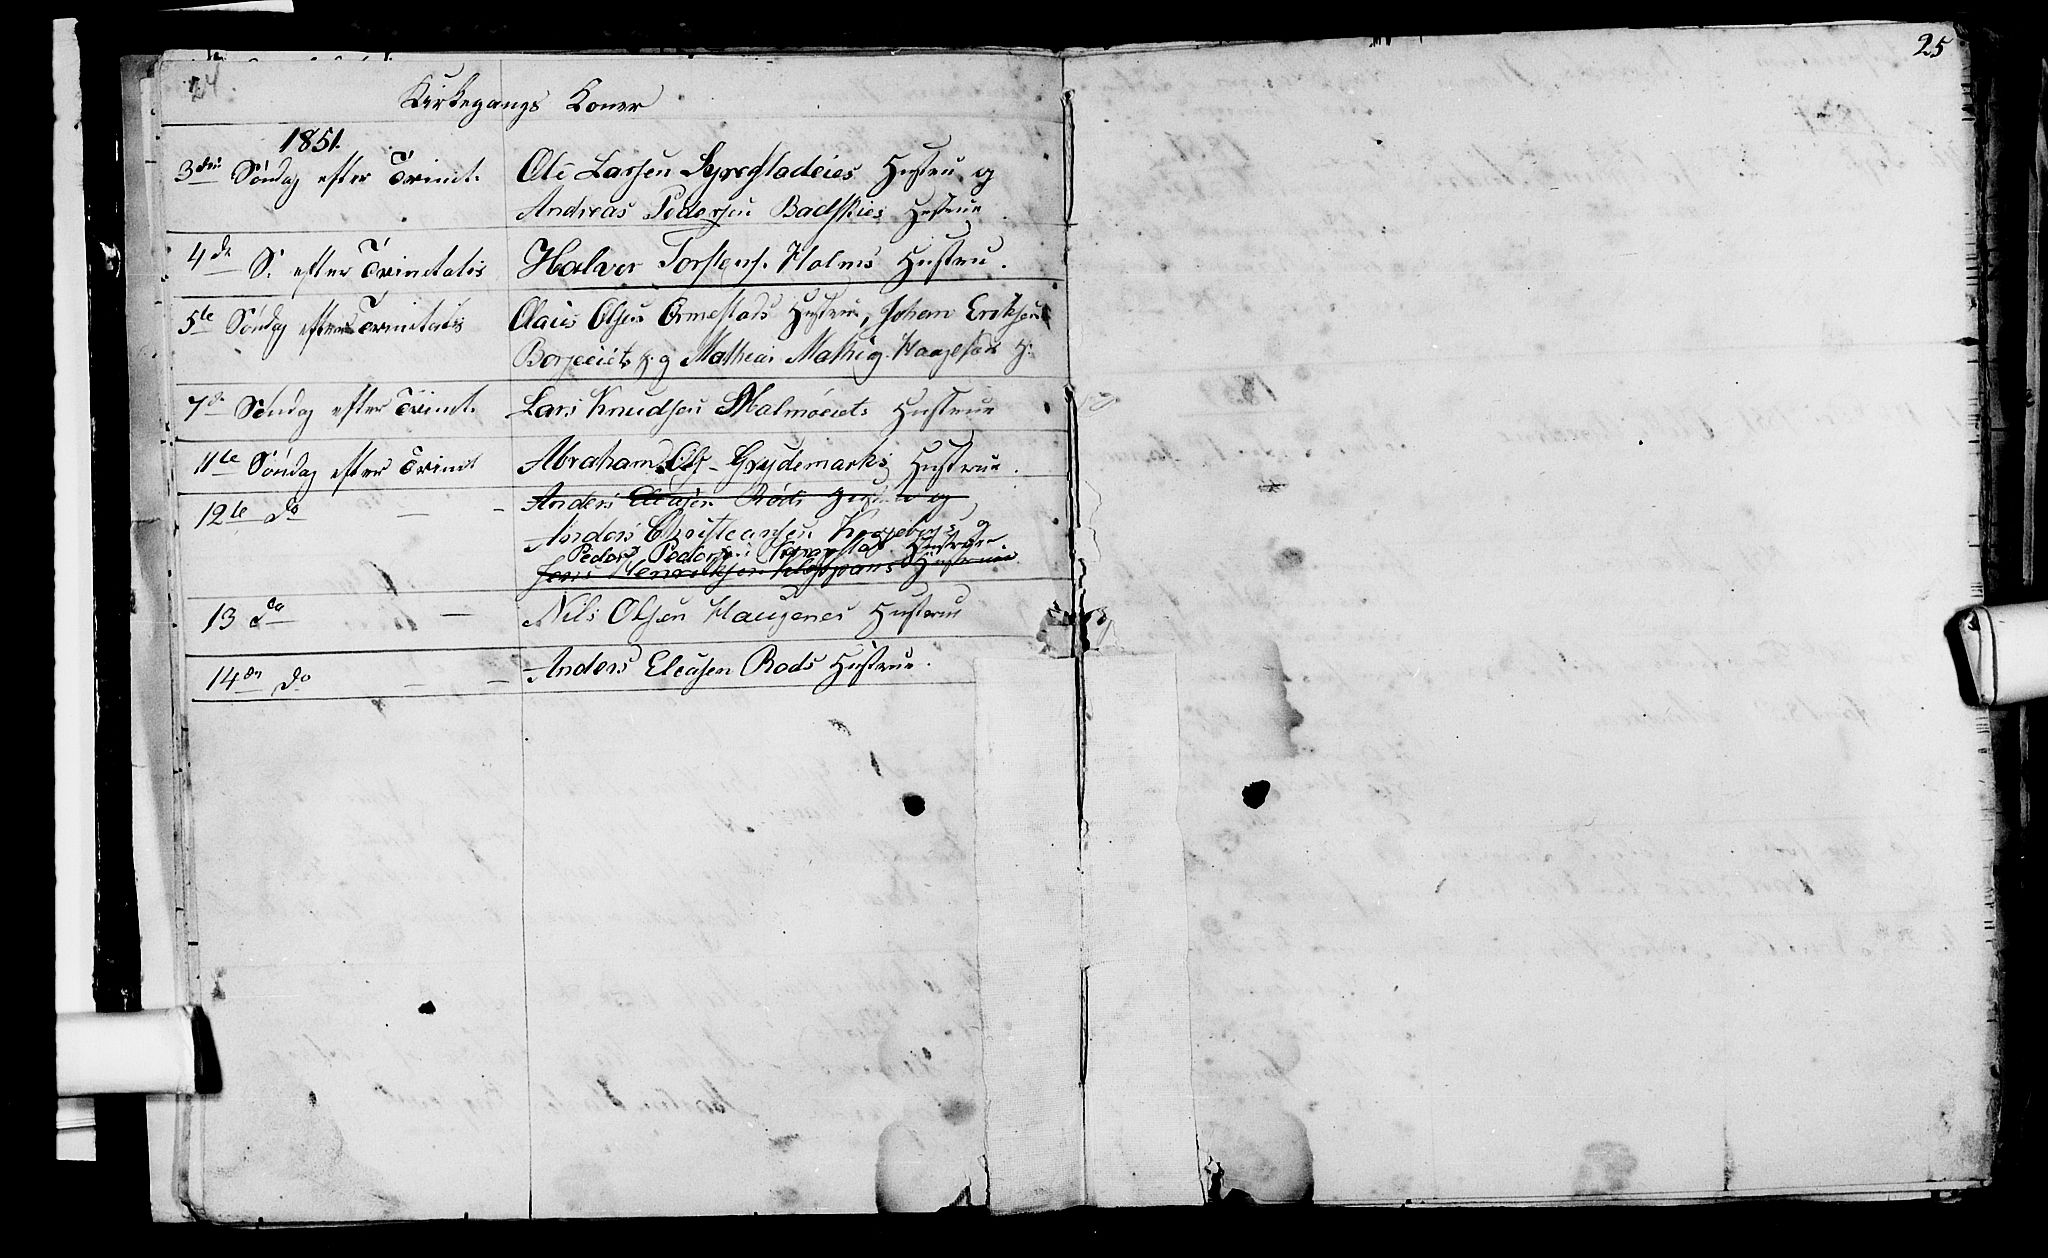 24.
Kirkegangs Koner
1851.
3die Søndag efter Trinit. Ole Larsen Hustru og
Andreas Pedersen Hustrue
4de S. efter Trinitatis Halvor Torstens. Holms Hustru.
5te Søndag efter Trinitatis Claus Olsen Ormestads Hustrue, Johan Eriksen
Borjeeiets H. og Mathias Mathis. H.
7de Søndag efter Trinit. Lars Knudsen Malmøeiets Hustrue
11te Søndag efter Trinit Abraham Ols. Grydemarks Hustrue.
12te do — — Anders Eliasen Røds Hustrue og
Anders Christiansen og
Peder Pedersen Hustrue
Jens Henriksen Kleppans Hustrue.
13 do — Nils Olsen Haugenes Hustrue
14de do — — Anders Eliasen Røds Hustrue.
25